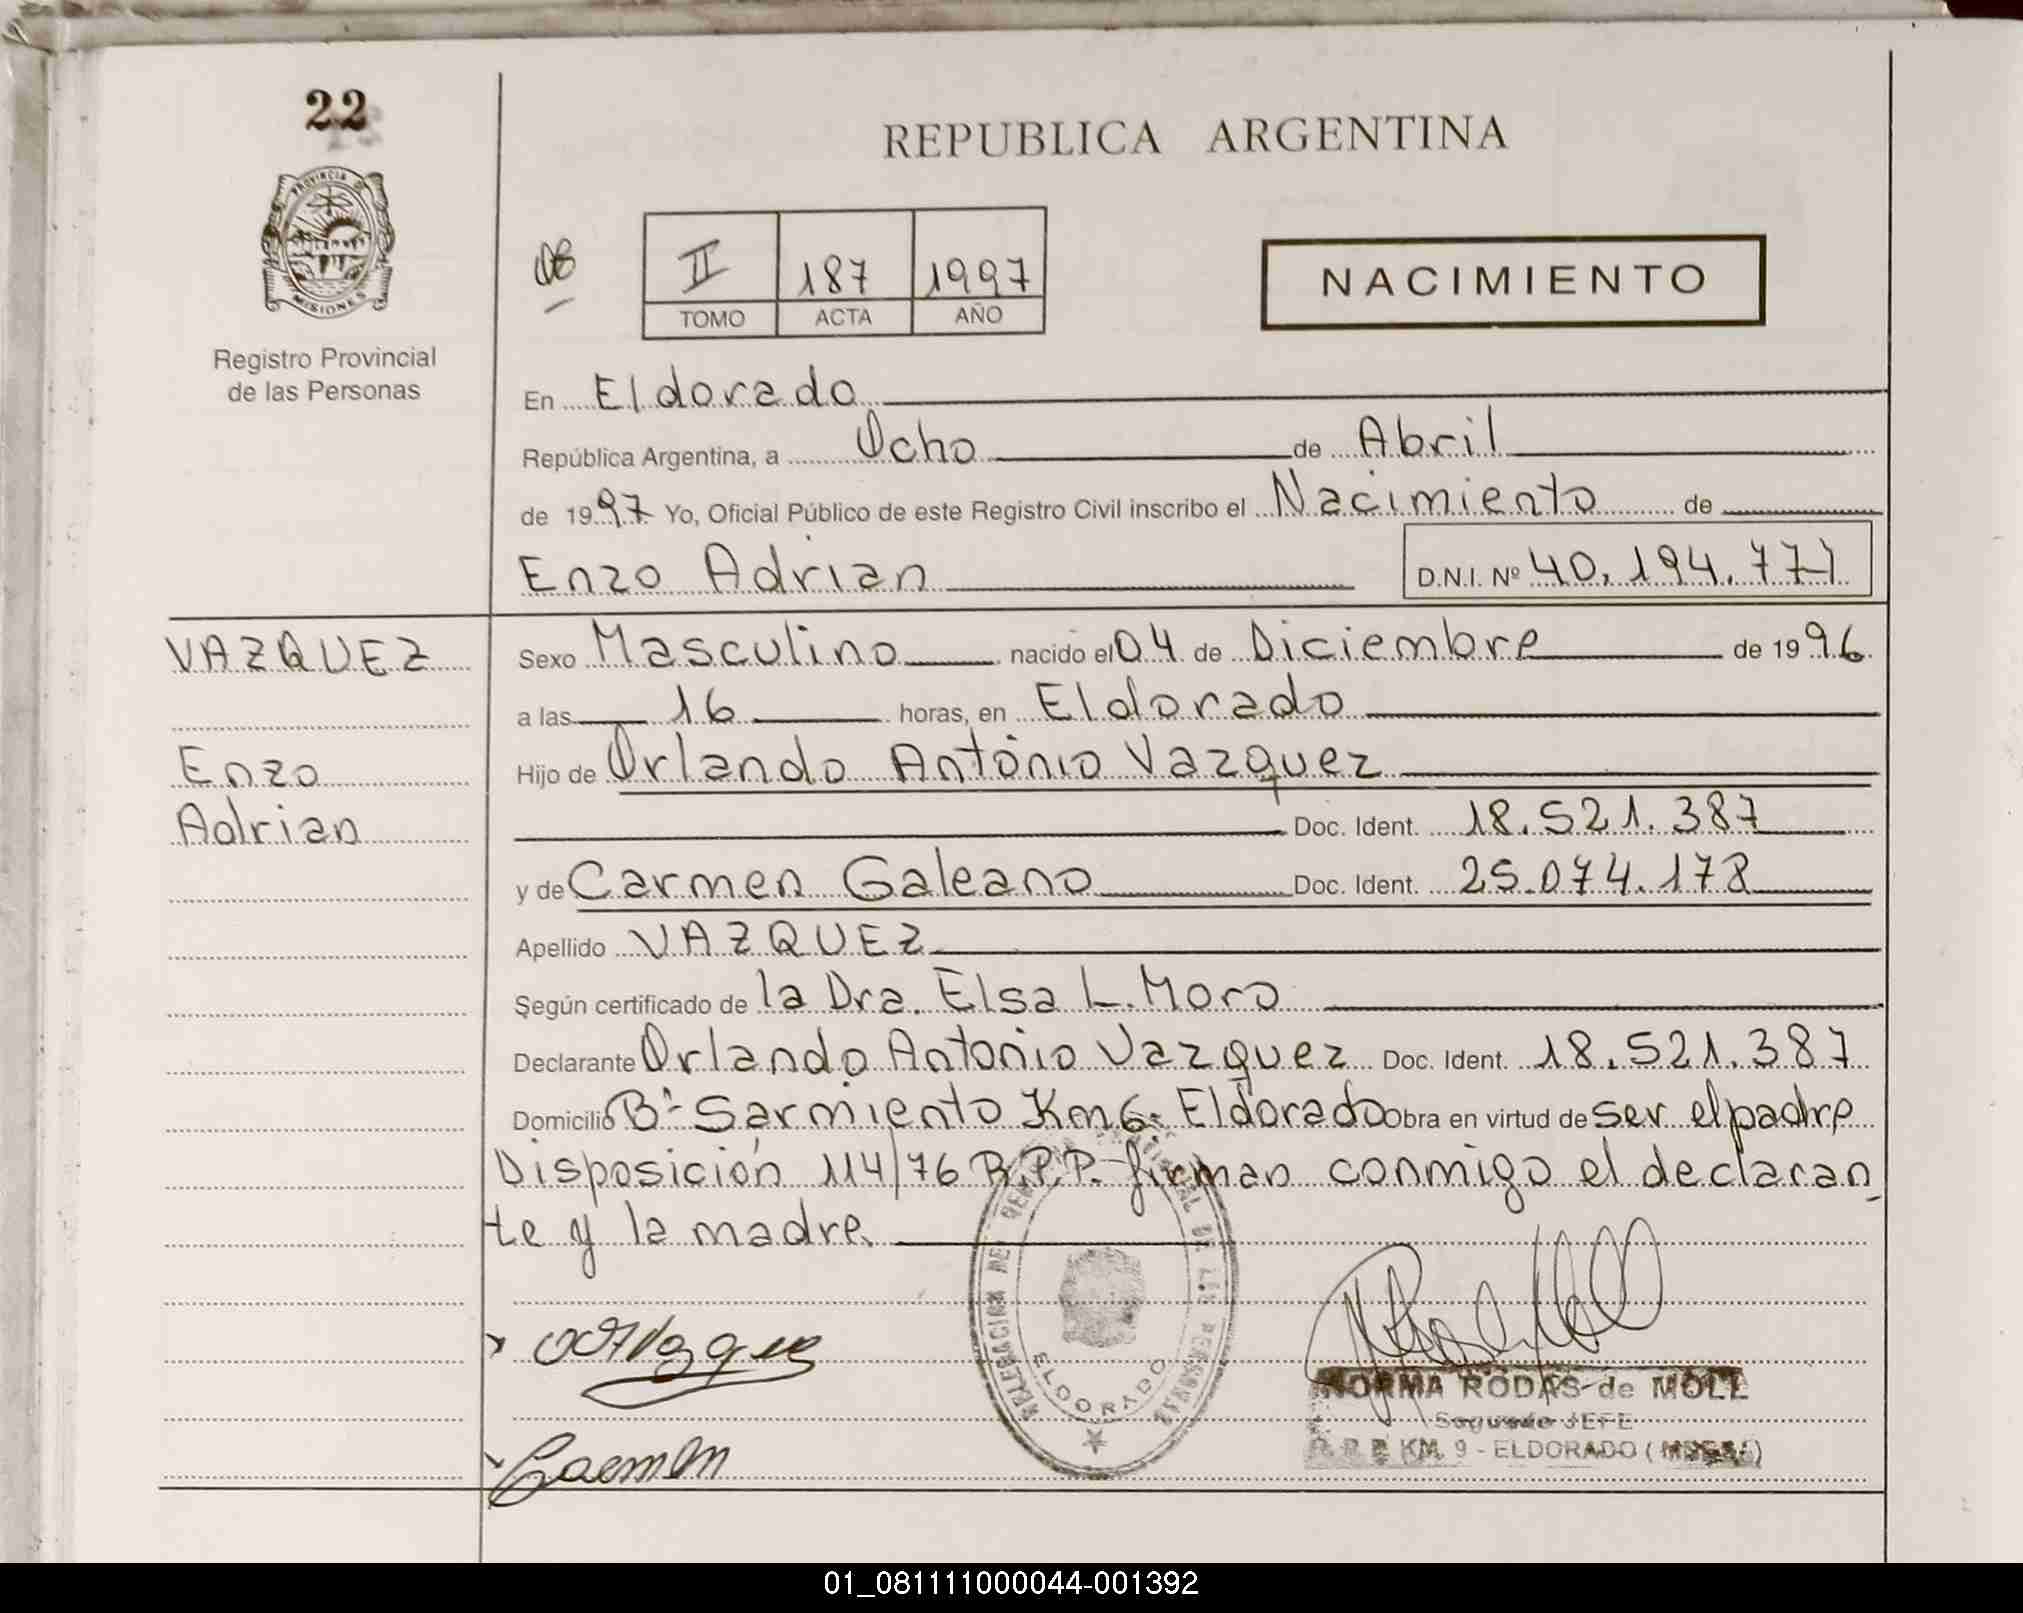 22
PROVINCIA DE
MISIONES
Registro Provincial
de las Personas
REPUBLICA ARGENTINA
08
II 187 1997
TOMO ACTA AÑO
NACIMIENTO
En Eldorado
República Argentina, a Ocho de Abril
de 1997 Yo, Oficial Público de este Registro Civil inscribo el Nacimiento de
Enzo Adrian D.N.I. Nº 40.194.777
VAZQUEZ
Enzo
Adrian
Sexo Masculino nacido el 04 de Diciembre de 1996
a las 16 horas, en Eldorado
Hijo de Orlando Antonio Vazquez
Doc. Ident. 18.521.387
y de Carmen Galeano Doc. Ident. 25.074.178
Apellido VAZQUEZ
Según certificado de la Dra. Elsa L. Moro
Declarante Orlando Antonio Vazquez Doc. Ident. 18.521.387
Domicilio Bº Sarmiento Km 6. Eldorado Obra en virtud de ser el padre
Disposición 114/76 R.P.P. firman conmigo el declaran
te y la madre.
ELDORADO
Carmen
NORMA RODAS de MOLL
Segundo JEFE
R.P.P. KM. 9 - ELDORADO (
01_081111000044-001392